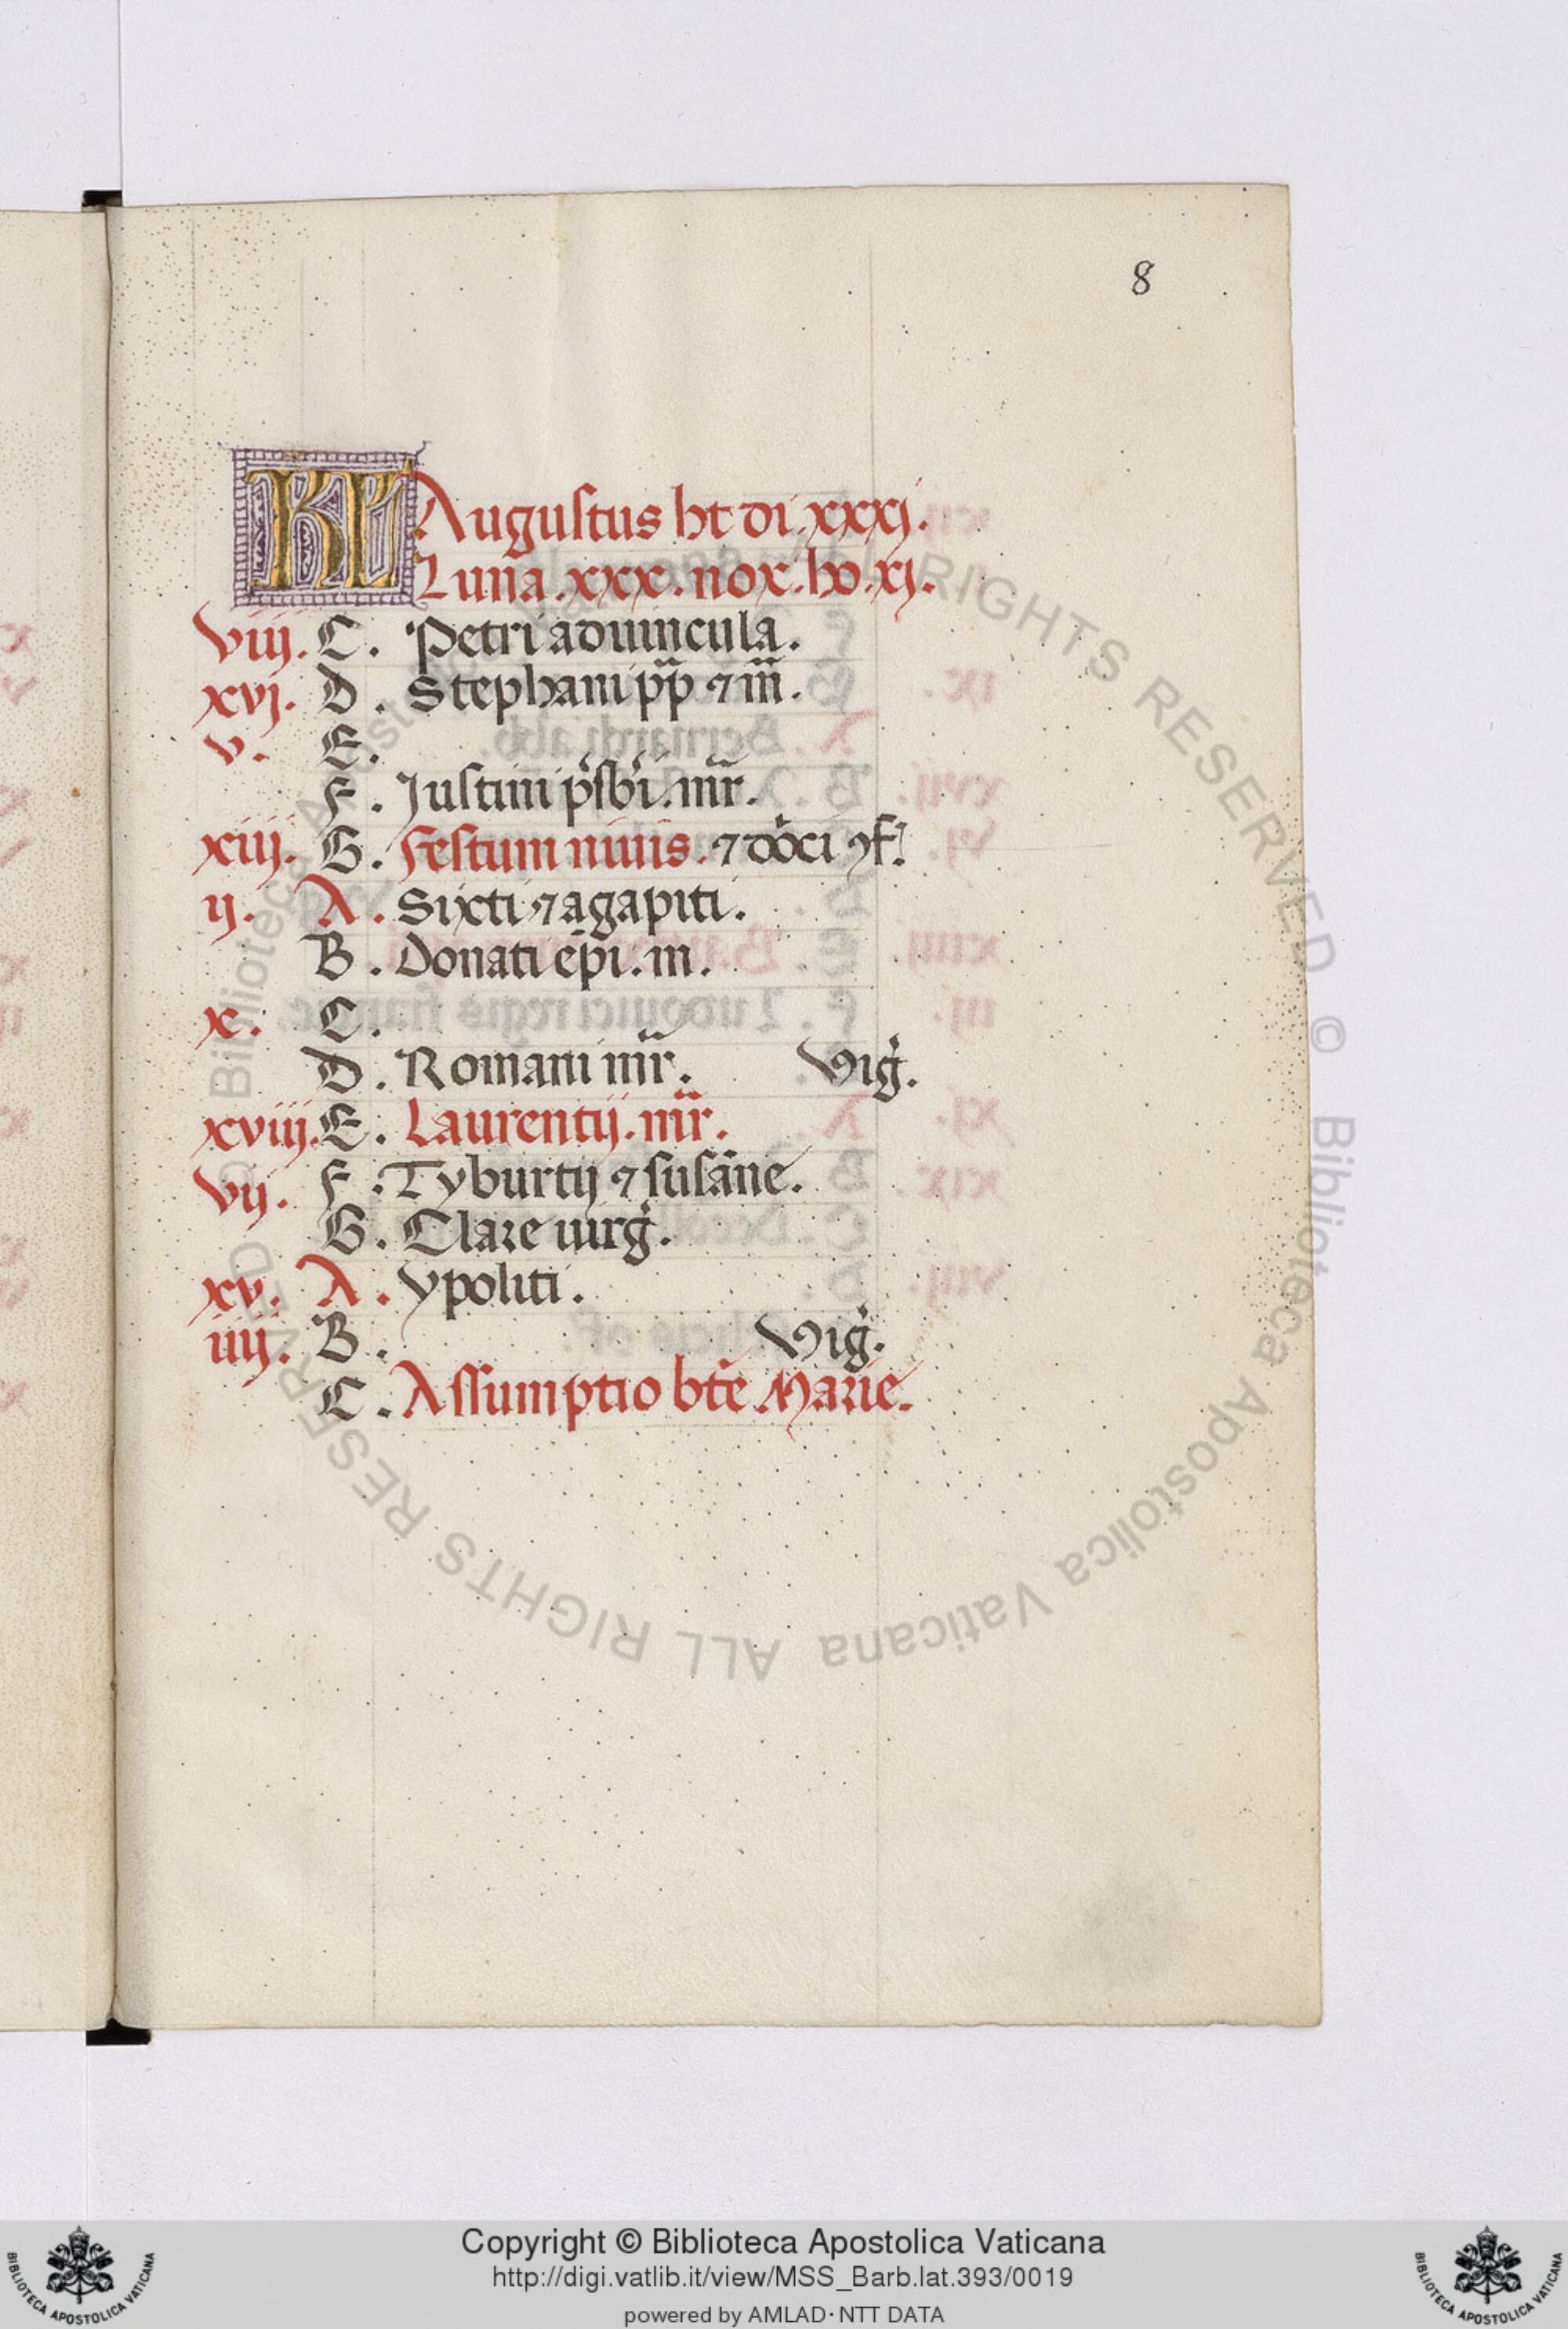 8
KL Augustus ht di. xxxj.
Luna. xxx. nox. ho. xj.
viij. C. Petri ad uincula.
xvj. D. Stephani pp ⁊ m̄.
v. E.
F. Justini p̄sbi. mr̄.
xiij. G. Festum niuis. ⁊ dōci ꝯf.
ij. A. Sixti ⁊ agapiti.
B. Donati ēpi. m.
x. C.
D. Romani mr̄. Vig̉.
xviij. E. Laurentij. mr̄.
vij. F. Tyburtij ⁊ susāne.
G. Clare uirg̉.
xv. A. ypoliti.
iiij. B. Vig̉.
C. Assumptio bt̄e Marie.
© Biblioteca Apostolica Vaticana ALL RIGHTS RESERVED
Copyright © Biblioteca Apostolica Vaticana
http://digi.vatlib.it/view/MSS_Barb.lat.393/0019
powered by AMLAD·NTT DATA
BIBLIOTECA APOSTOLICA VATICANA
BIBLIOTECA APOSTOLICA VATICANA